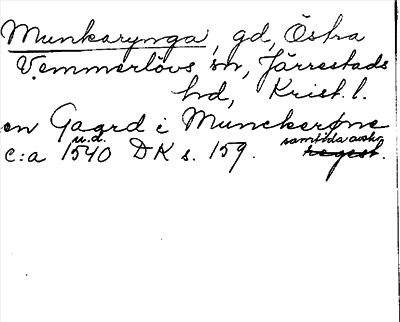 Munkarynga, gd, Östra
V. Vemmerlövs sn, Järrestads
hd, Krist. l.
en Gaard i Munckerøne
u.d. samtida avskr.
c:a 1540 DK s. 159. regest.